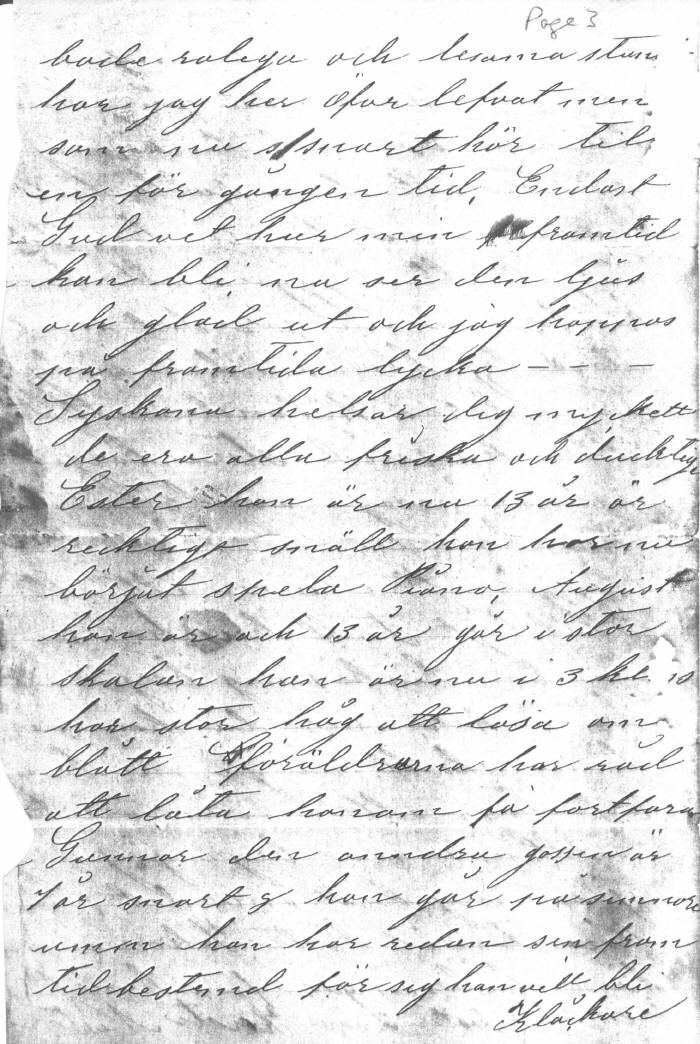 Page 3
både roliga och lesama stun
har jag her öfor lefvat men
som nu snart hör til
en för gången tid, Endast
Gud vet hur min framtid
kan bli nu ser den ljus
och glad ut och jag hoppas
på framtida lycka - - -
Syskona helsar dig myckett
de ero alla friska och ducktig
Ester hon är nu 13 år är
recktigt snäll hon har nu
börjat spela Piano, August
han är och 13 år går i stor
skolan han är nu i 3 kl
har stor håg att läsa om
blått föräldrarna har råd
att låta honom få fortfara
Gunnar den anndra gossen är
7 år snart & han går på
han har redan sin fram
tid bestemd för sig han vill bli
Klåckare